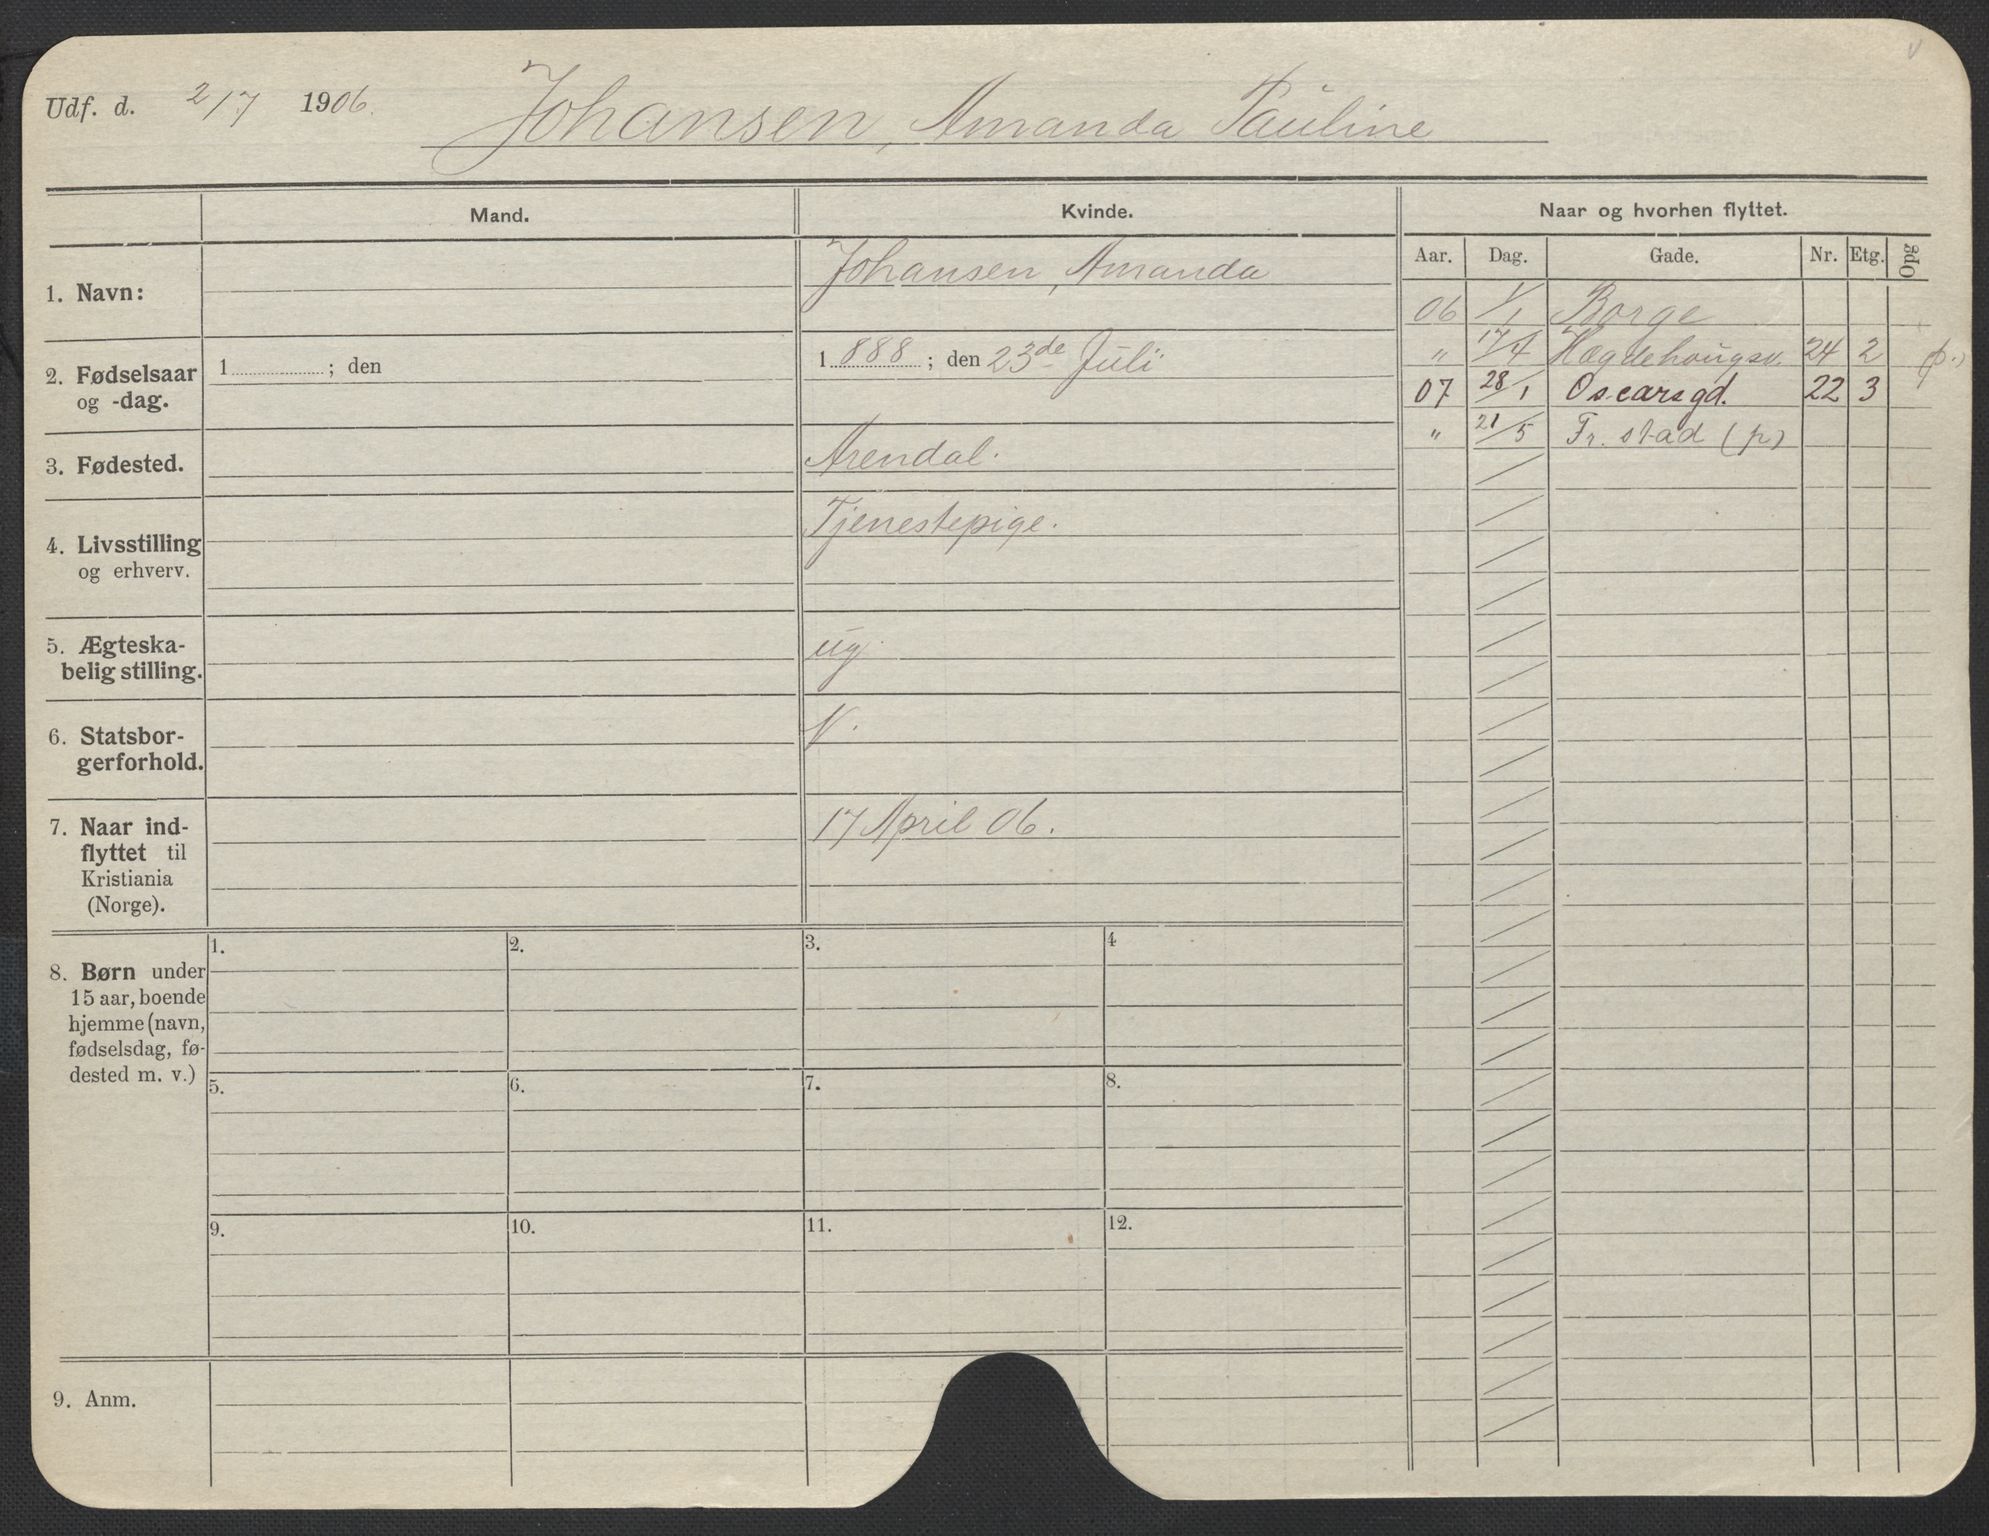 Udf. d. 2/7 1906. Johansen, Amanda Pauline
Mand. Kvinde. Naar og hvorhen flyttet.
Aar. Dag. Gade. Nr. Etg. Opg
1. Navn: Johansen, Amanda
06 1/1 Borge
2. Fødselsaar og -dag. 1 ; den 1888 ; den 23de Juli
" 17/4 Hægdehougsv. 24 2 (p.)
07 28/1 Oscarsgd. 22 3
" 21/5 Fr. stad (p)
3. Fødested. Arendal.
4. Livsstilling og erhverv. Tjenestepige.
5. Ægteska-
belig stilling. ug.
6. Statsbor-
gerforhold. N.
7. Naar ind-
flyttet til
Kristiania
(Norge). 17 April 06.
8. Børn under
15 aar, boende
hjemme (navn,
fødselsdag, fø-
dested m. v.)
1. 2. 3. 4
5. 6. 7. 8.
9. 10. 11. 12.
9. Anm.